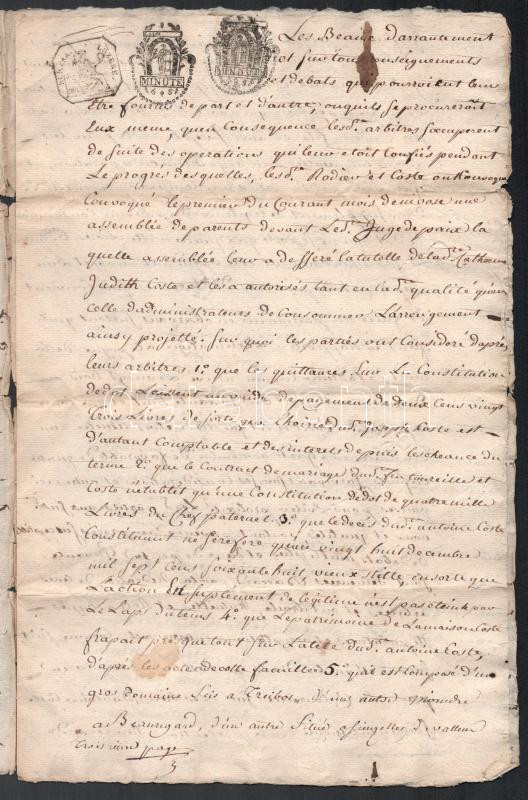 Les Beaux d'arrantement
et sur tous Renseignements
et debats qui pourroient leur
être fournis de part et d'autre, ou quils se procureroit
Eux meme, qu'en Consequence lesd. arbitres s'occuperent
de suite des operations qui leur etoit Confiés pendant
Le progres des quelles, les Srs. Rodier et Coste ont Convoqué
Convoqué le premier du Courant mois de mose une
assemblée de parents devant Led. Juge de paix la
quelle assemblée leur a defferé la tutelle de lad. Catherine
Judith Coste et les a autorisés tant en lad. qualité qu'en
Celle d'administrateurs de Consommer L'arrengement
ainsy projetté. Sur quoi les parties ont Consideré d'après
leurs arbitres 1º. que les quittances Sur La Constitution
de dot Laissent un vuide de payement de deux Cens vingt
Trois Livres de sorte que l'hoirie dud. Joseph Coste est
d'autant Comptable et des interets depuis lescheance du
terme 2º. que le Contract de mariage dud. feu et
Coste n'etablit qu'une Constitution de dot de quatre mille
Livres du Chef paternel 3º. que le décès dud. antoine Coste
Constituant ne se refere qu'au vingt huit decembre
mil sept Cens soixante huit vieux stille, ensorte que
L'action En suplement de légitime n'est pas éteint par
Le Laps du tems 4º. que Le patrimoine de La maison Coste
frapait presque tout sur La tête dud. antoine Coste,
d'après les actes de cette famille 5º. qu'il est Composé d'un
gros domaine Sis a d'un autre moindre
a Beauregard, d'un autre Situé a de valleur
Troisieme page
MINUTE